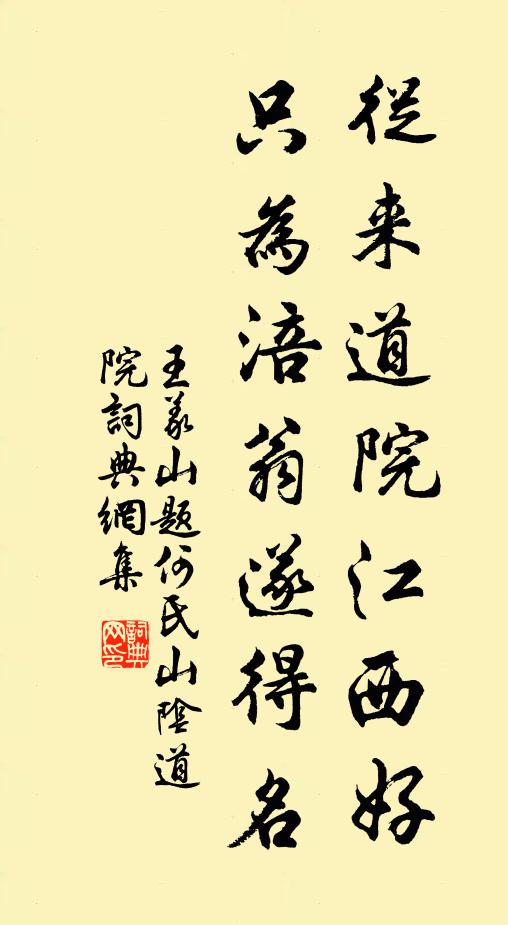 從来道院江西好
只為涪翁遂得名
王义山题何氏山陰道
院詞典網集
詞典
网印